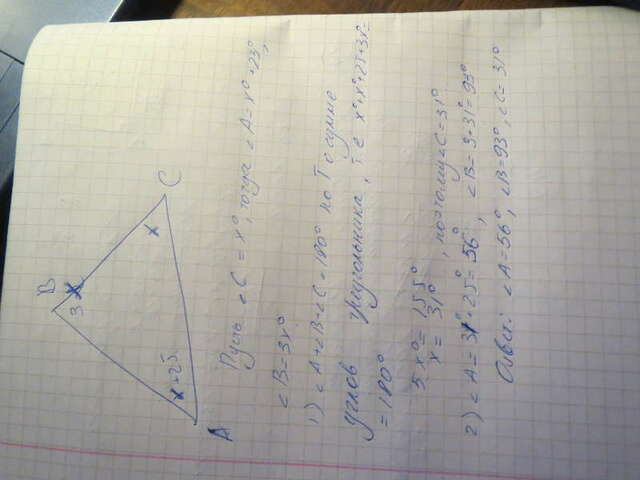 B
3x
x
C
x+25
A
Пусть ∠C = x°, тогда ∠A = x°+25°,
∠B = 3x°
1) ∠A+∠B+∠C = 180° по Т о сумме
углов треугольника, т.е x°+x°+25+3x°=
= 180°
5x° = 155°
x = 31°, поэтому ∠C = 31°
2) ∠A = 31°+25° = 56°, ∠B = 3·31° = 93°
Ответ: ∠A = 56°, ∠B = 93°, ∠C = 31°